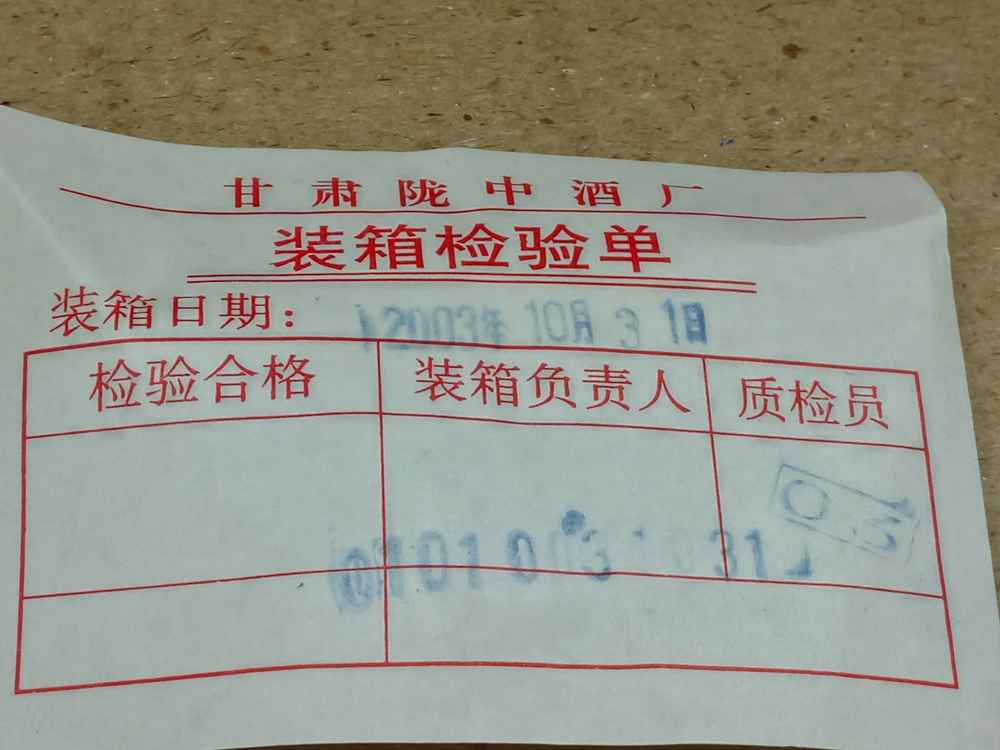 甘肃陇中酒厂
装箱检验单
装箱日期: 2003年 10月 31日
检验合格 装箱负责人 质检员